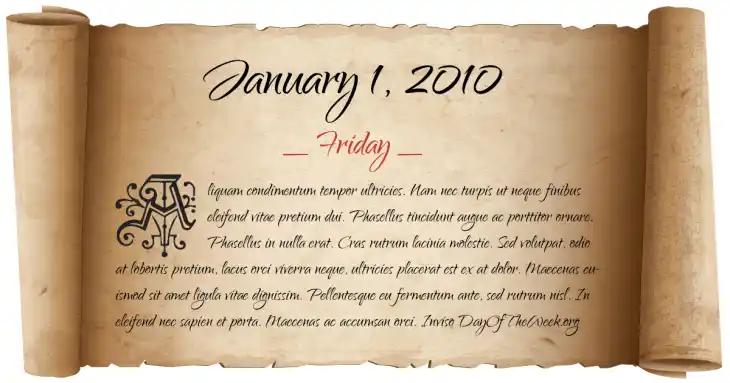 January 1, 2010
Friday
Aliquam condimentum tempor ultricies. Nam nec turpis ut neque finibus
eleifend vitae pretium dui. Phasellus tincidunt augue ac porttitor ornare.
Phasellus in nulla erat. Cras rutrum lacinia molestie. Sed volutpat, odio
at lobortis pretium, lacus orci viverra neque, ultricies placerat est ex at dolor. Maecenas eu-
ismod sit amet ligula vitae dignissim. Pellentesque eu fermentum ante, sed rutrum nisl. In
eleifend nec sapien et porta. Maecenas ac accumsan orci. Inviso DayOfTheWeek.org